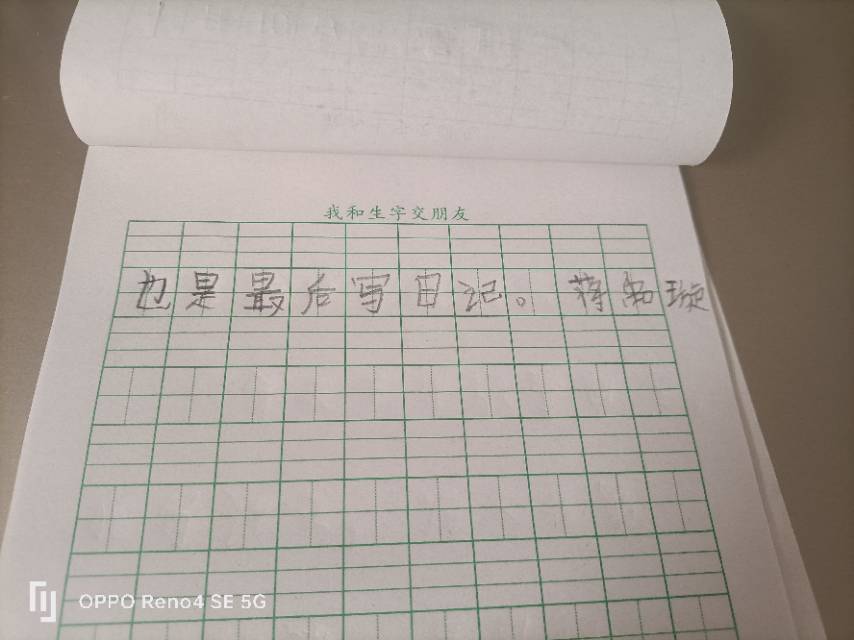 我和生字交朋友
也是最后写日记。 蒋 璇
OPPO Reno4 SE 5G